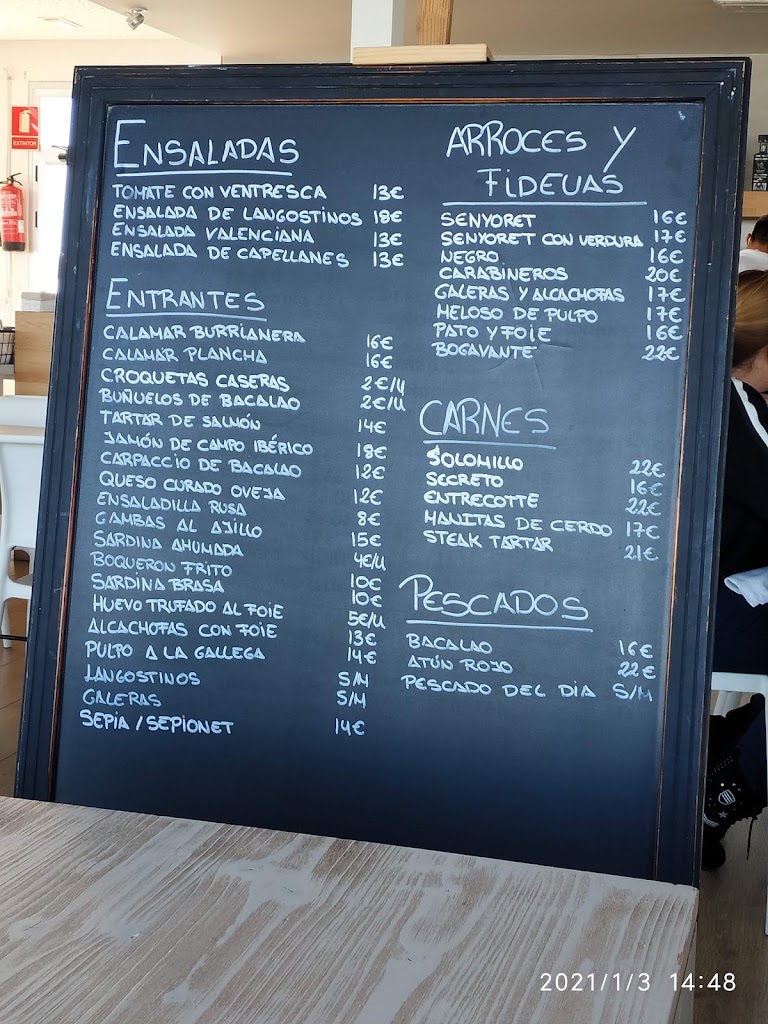 EXTINTOR
ENSALADAS
TOMATE CON VENTRESCA 13€
ENSALADA DE LANGOSTINOS 18€
ENSALADA VALENCIANA 13€
ENSALADA DE CAPELLANES 13€
ENTRANTES
CALAMAR BURRIANERA 16€
CALAMAR PLANCHA 16€
CROQUETAS CASERAS 2€/U
BUÑUELOS DE BACALAO 2€/U
TARTAR DE SALMÓN 14€
JAMÓN DE CAMPO IBÉRICO 18€
CARPACCIO DE BACALAO 12€
QUESO CURADO OVEJA 12€
ENSALADILLA RUSA 8€
GAMBAS AL AJILLO 15€
SARDINA AHUMADA 4€/U
BOQUERON FRITO 10€
SARDINA BRASA 10€
HUEVO TRUFADO AL FOIE 5€/U
ALCACHOFAS CON FOIE 13€
PULPO A LA GALLEGA 14€
LANGOSTINOS S/M
GALERAS S/M
SEPIA / SEPIONET 14€
ARROCES Y
FIDEUAS
SENYORET 16€
SENYORET CON VERDURA 17€
NEGRO 16€
CARABINEROS 20€
GALERAS Y ALCACHOFAS 17€
MELOSO DE PULPO 17€
PATO Y FOIE 16€
BOGAVANTE 22€
CARNES
SOLOMILLO 22€
SECRETO 16€
ENTRECOTTE 22€
MANITAS DE CERDO 17€
STEAK TARTAR 21€
PESCADOS
BACALAO 16€
ATÚN ROJO 22€
PESCADO DEL DIA S/M
2021/1/3 14:48